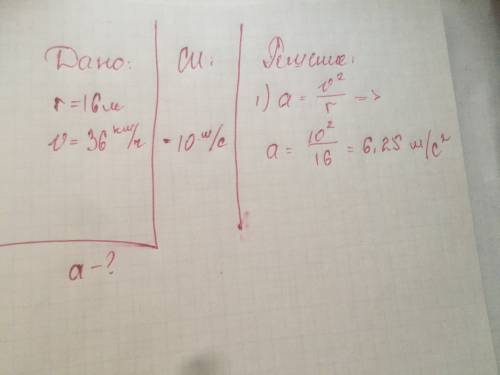 Дано:
r = 16 м
v = 36 км/ч
a - ?
СИ:
= 10 м/с
Решение:
1) a = v²/r =>
a = 10²/16 = 6,25 м/с²